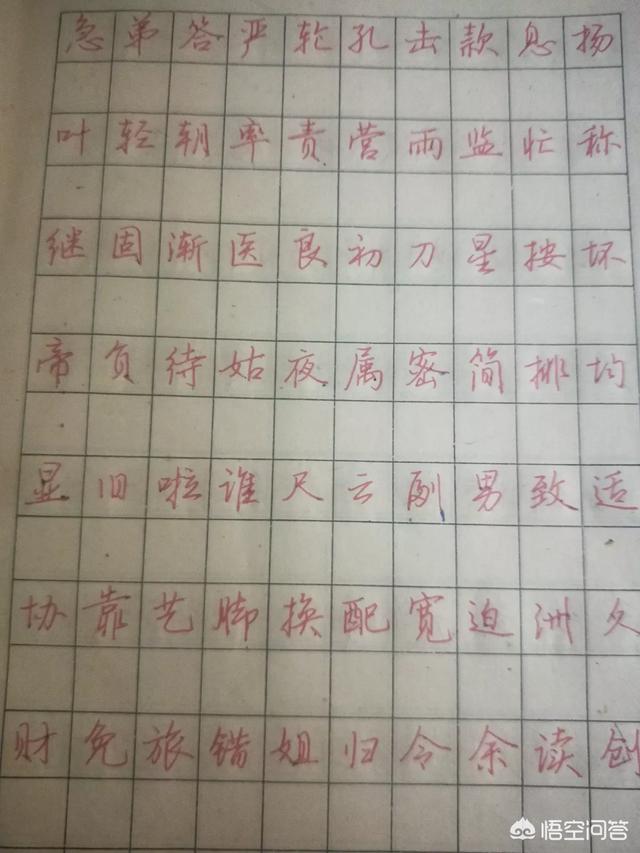 急弟答严轮孔击款息扬
叶轻朝率责营雨监忙称
继固渐医良初刀星按坏
帝负待姑夜属密简排均
显旧啦谁尺云副男致适
协靠艺脚换配宽迫洲久
财免旅错姐归令余读创
悟空问答